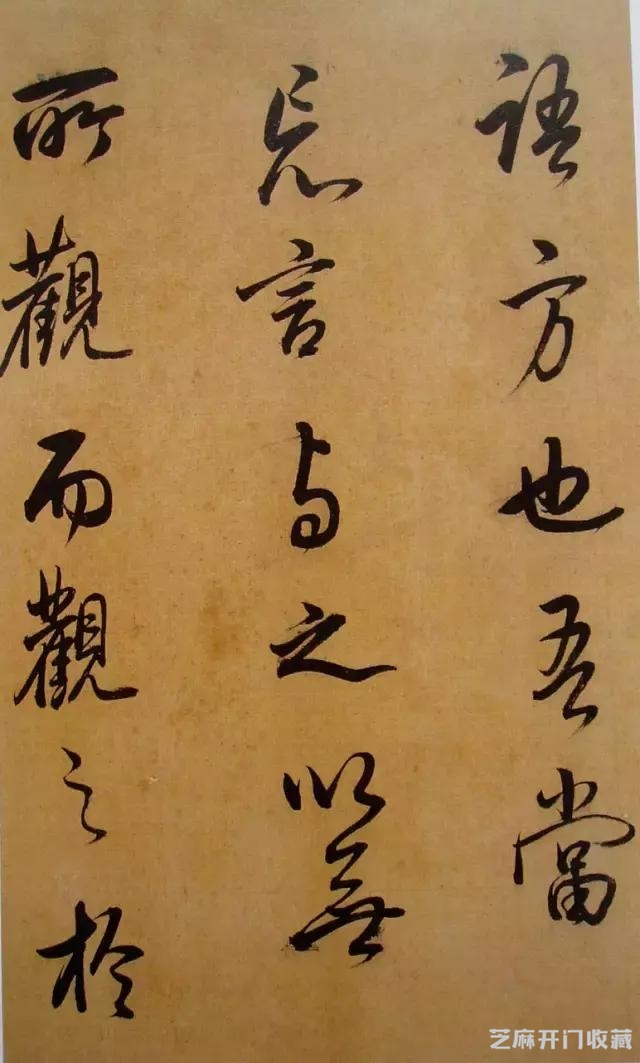 語方也吾當
忘言与之以無
所觀而觀之於
芝麻开门收藏